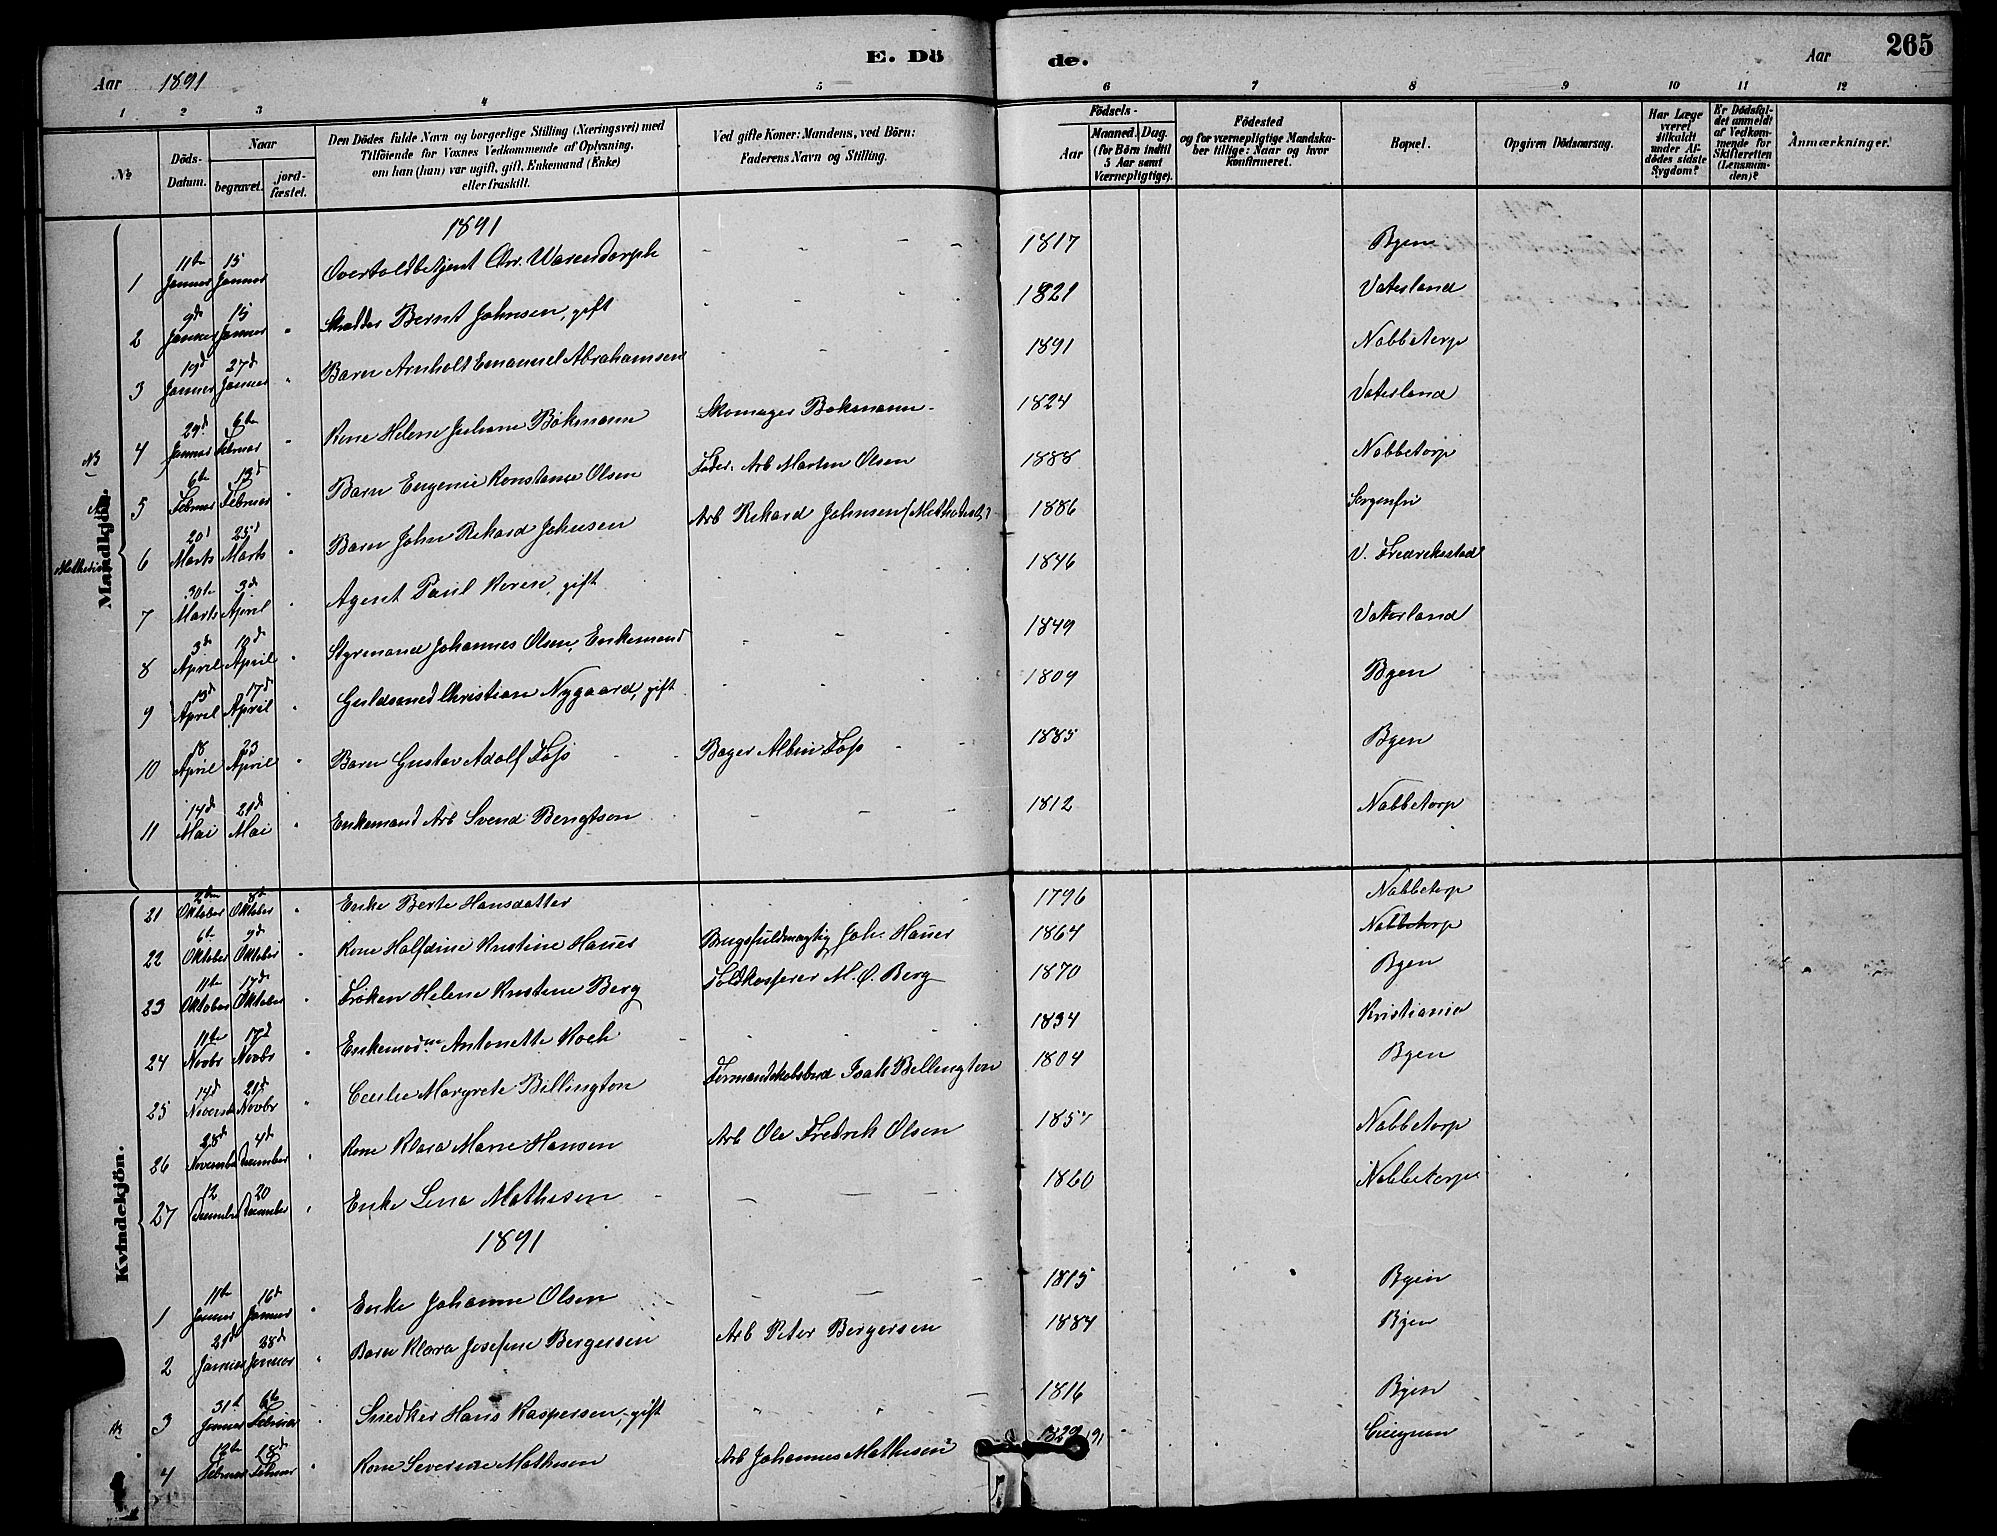 E. Dö de.
Aar 1891
Aar
265
1 2 3 4 5 6 7 8 9 10 11 12
№
Döds-Datum.
Naar
begravet.
jord-fæstet.
Den Dödes fulde Navn og borgerlige Stilling (Næringsvei) med
Tilföiende for Voxnes Vedkommende af Oplysning,
om han (hun) var ugift, gift, Enkemand (Enke)
eller fraskilt.
Ved gifte Koner: Mandens, ved Börn:
Faderens Navn og Stilling.
Födsels-
Aar
Maaned. Dag.
(for Börn indtil
5 Aar samt
Værnepligtige).
Födested
og for værnepligtige Mandska-
ber tillige: Naar og hvor
konfirmeret.
Bopæl.
Opgiven Dödsaarsag.
Har Læge
været
tilkaldt
under Af-
dödes sidste
Sygdom?
Er Dödsfal-
det anmeldt
af Vedkom-
mende for
Skifteretten
(Lensman-
den)?
Anmærkninger.
Mandkjön.
1891
1 11te Januar 15 Januar Overtoldbetjent Chr. Warendorph 1817 Byen
2 9d Januar 15 Januar " Skrædder Bernt Johnsen, gift 1821 Vaterland
3 19d Januar 27d Januar " Barn Arnholt Emanuel Abrahamsen 1891 Nabbetorp
4 29d Januar 6te Februar " Kone Helene Juliane Bökmann Skomager Bokmann 1824 Vaterland
NB 5 6te Februar 13d Februar " Barn Eugenie Konstance Olsen Fader: Arb Martin Olsen 1888 Nabbetorp
6 20d Marts 25d Marts " Barn John Rikard Johnsen Arb Rikard Johnsen (Methodist) 1886 Sorgenfri
7 30te Marts 3d April " Agent Paul Koren, gift 1846 V. Fredriksstad
8 3d April 12d April " Styrmand Johannes Olsen, Enkemand 1849 Vaterland
9 13d April 17d April " Guldsmed Christian Nygaard, gift 1809 Byen
10 18 April 23 April " Barn Gustav Adolf Foss Bager Albin Foss 1885 Byen
11 14d Mai 21d Mai " Enkemand Arb Svend Bengtson 1812 Nabbetorp
Kvindekjön.
21 Oktober 8de Oktober " Enke Berte Hansdatter 1796 Nabbetorp
22 6te Oktober 9d Oktober " Kone Halfdine Kristine Hauer Brugsfuldmægtig Joh. Hauer 1864 Nabbetorp
23 11te Oktober 17d Oktober " Fröken Helene Kristine Berg Toldkasserer M. O. Berg 1870 Byen
24 11te Novbr 17d Novbr " Enkemadme Antonette Koch 1834 Kristiania
25 14d Novemb 21d Novbr " Cecilie Margrete Billington Formandskabsbud Isak Billington 1804 Byen
26 28d November 4d December " Kone Klara Marie Hansen Arb Ole Fredrik Olsen 1857 Nabbetorp
27 12 December 20 December " Enke Lina Mathisen 1860 Nabbetorp
1891
1 11te Januar 16d Januar " Enke Johanne Olsen 1815 Byen
2 21d Januar 28d Januar " Barn Klara Josefine Bergersen Arb Peter Bergersen 1884 Byen
3 31te Januar 6te Februar Snedker Hans Kaspersen, gift 1816 Byen
4 12te Februar 18d Februar " Kone Severine Mathisen Arb Johannes Mathisen 1829